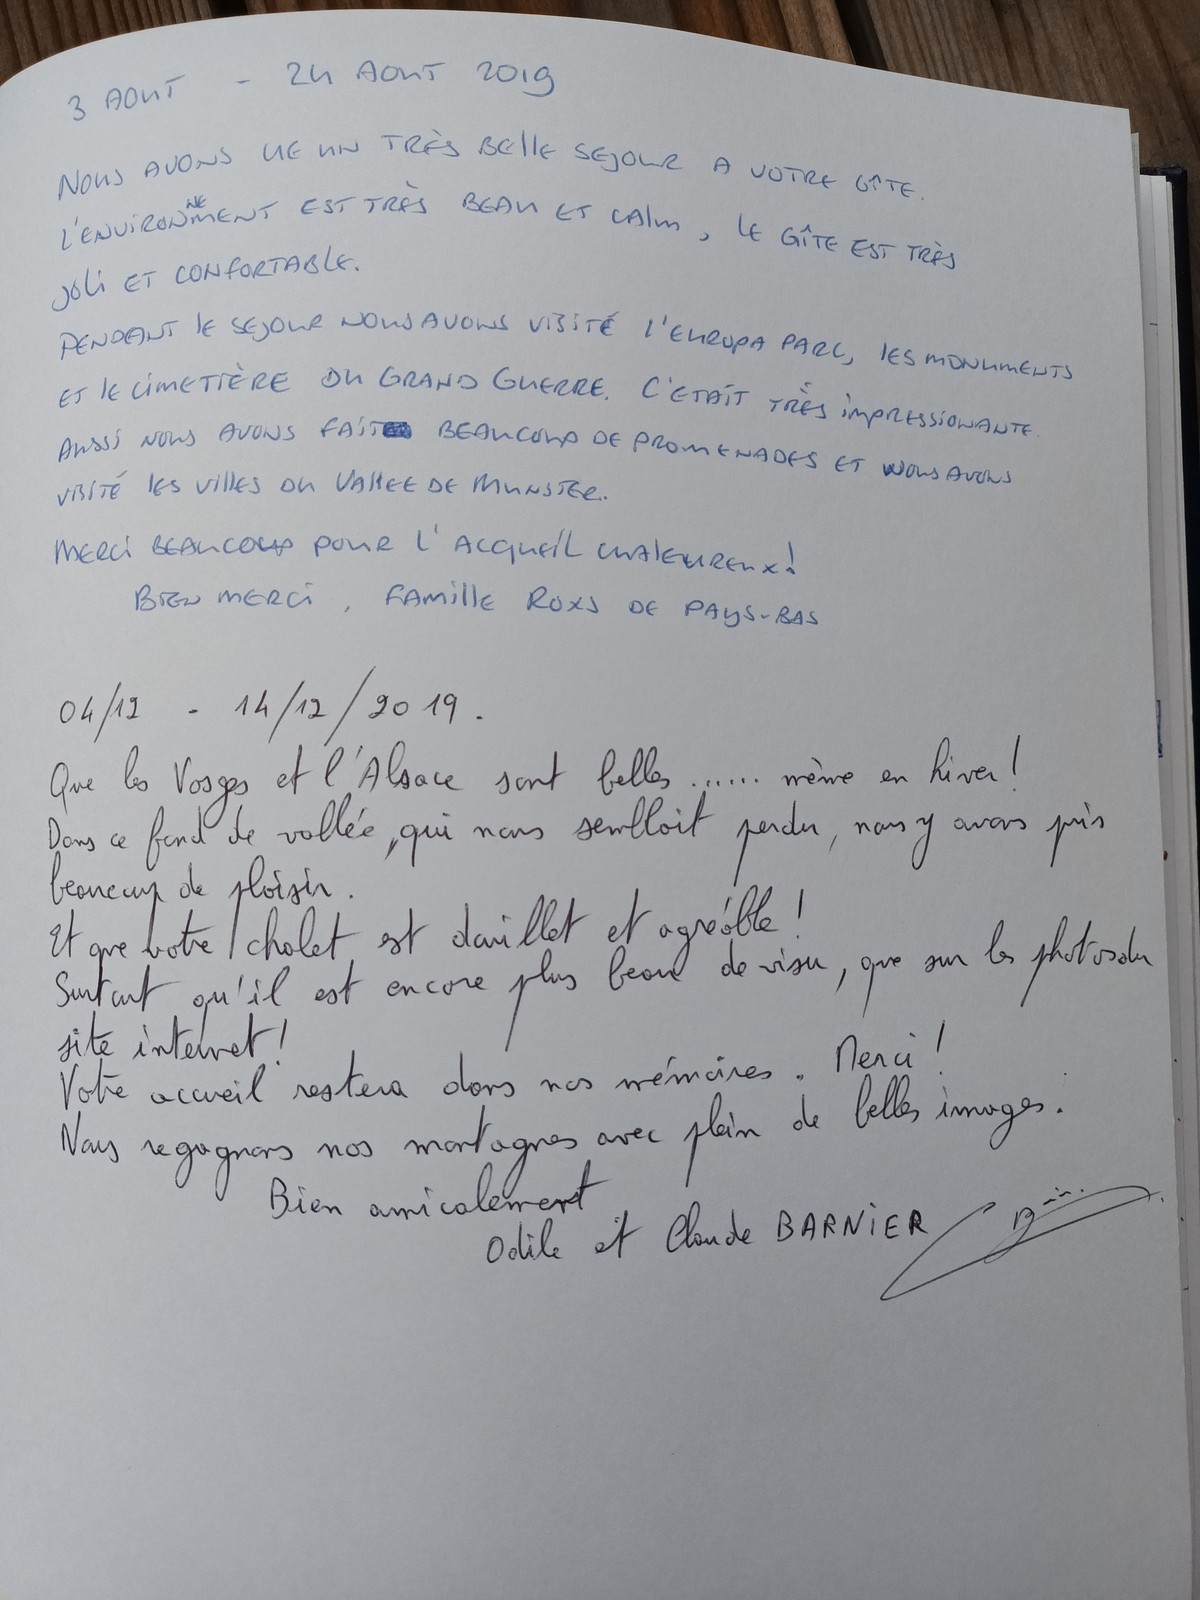 3 AOUT - 24 AOUT 2019
NOUS AVONS UE UN TRÈS BELLE SEJOUR A VOTRE GÎTE.
L'ENVIRONNEMENT EST TRÈS BEAU ET CALM, LE GÎTE EST TRÈS
JOLI ET CONFORTABLE.
PENDANT LE SEJOUR NOUS AVONS VISITÉ L'EUROPA PARC, LES MONUMENTS
ET LE CIMETIÈRE DU GRAND GUERRE. C'ETAIT TRÈS IMPRESSIONANTE.
AUSSI NOUS AVONS FAIT BEAUCOUP DE PROMENADES ET NOUS AVONS
VISITÉ LES VILLES DU VALLEE DE MUNSTER.
MERCI BEAUCOUP POUR L'ACQUEIL CHALEUREUX!
BIEN MERCI, FAMILLE ROXS DE PAYS-BAS
04/12 - 14/12/2019.
Que les Vosges et l'Alsace sont belles ...... même en hiver!
Dans ce fond de vallée, qui nous semblait perdu, nous y avons pris
beaucoup de plaisir.
Et que votre chalet est douillet et agréable!
Surtout qu'il est encore plus beau de visu, que sur les photos du
site internet!
Votre accueil restera dans nos mémoires. Merci!
Nous regagnons nos montagnes avec plein de belles images.
Bien amicalement
Odile et Claude BARNIER